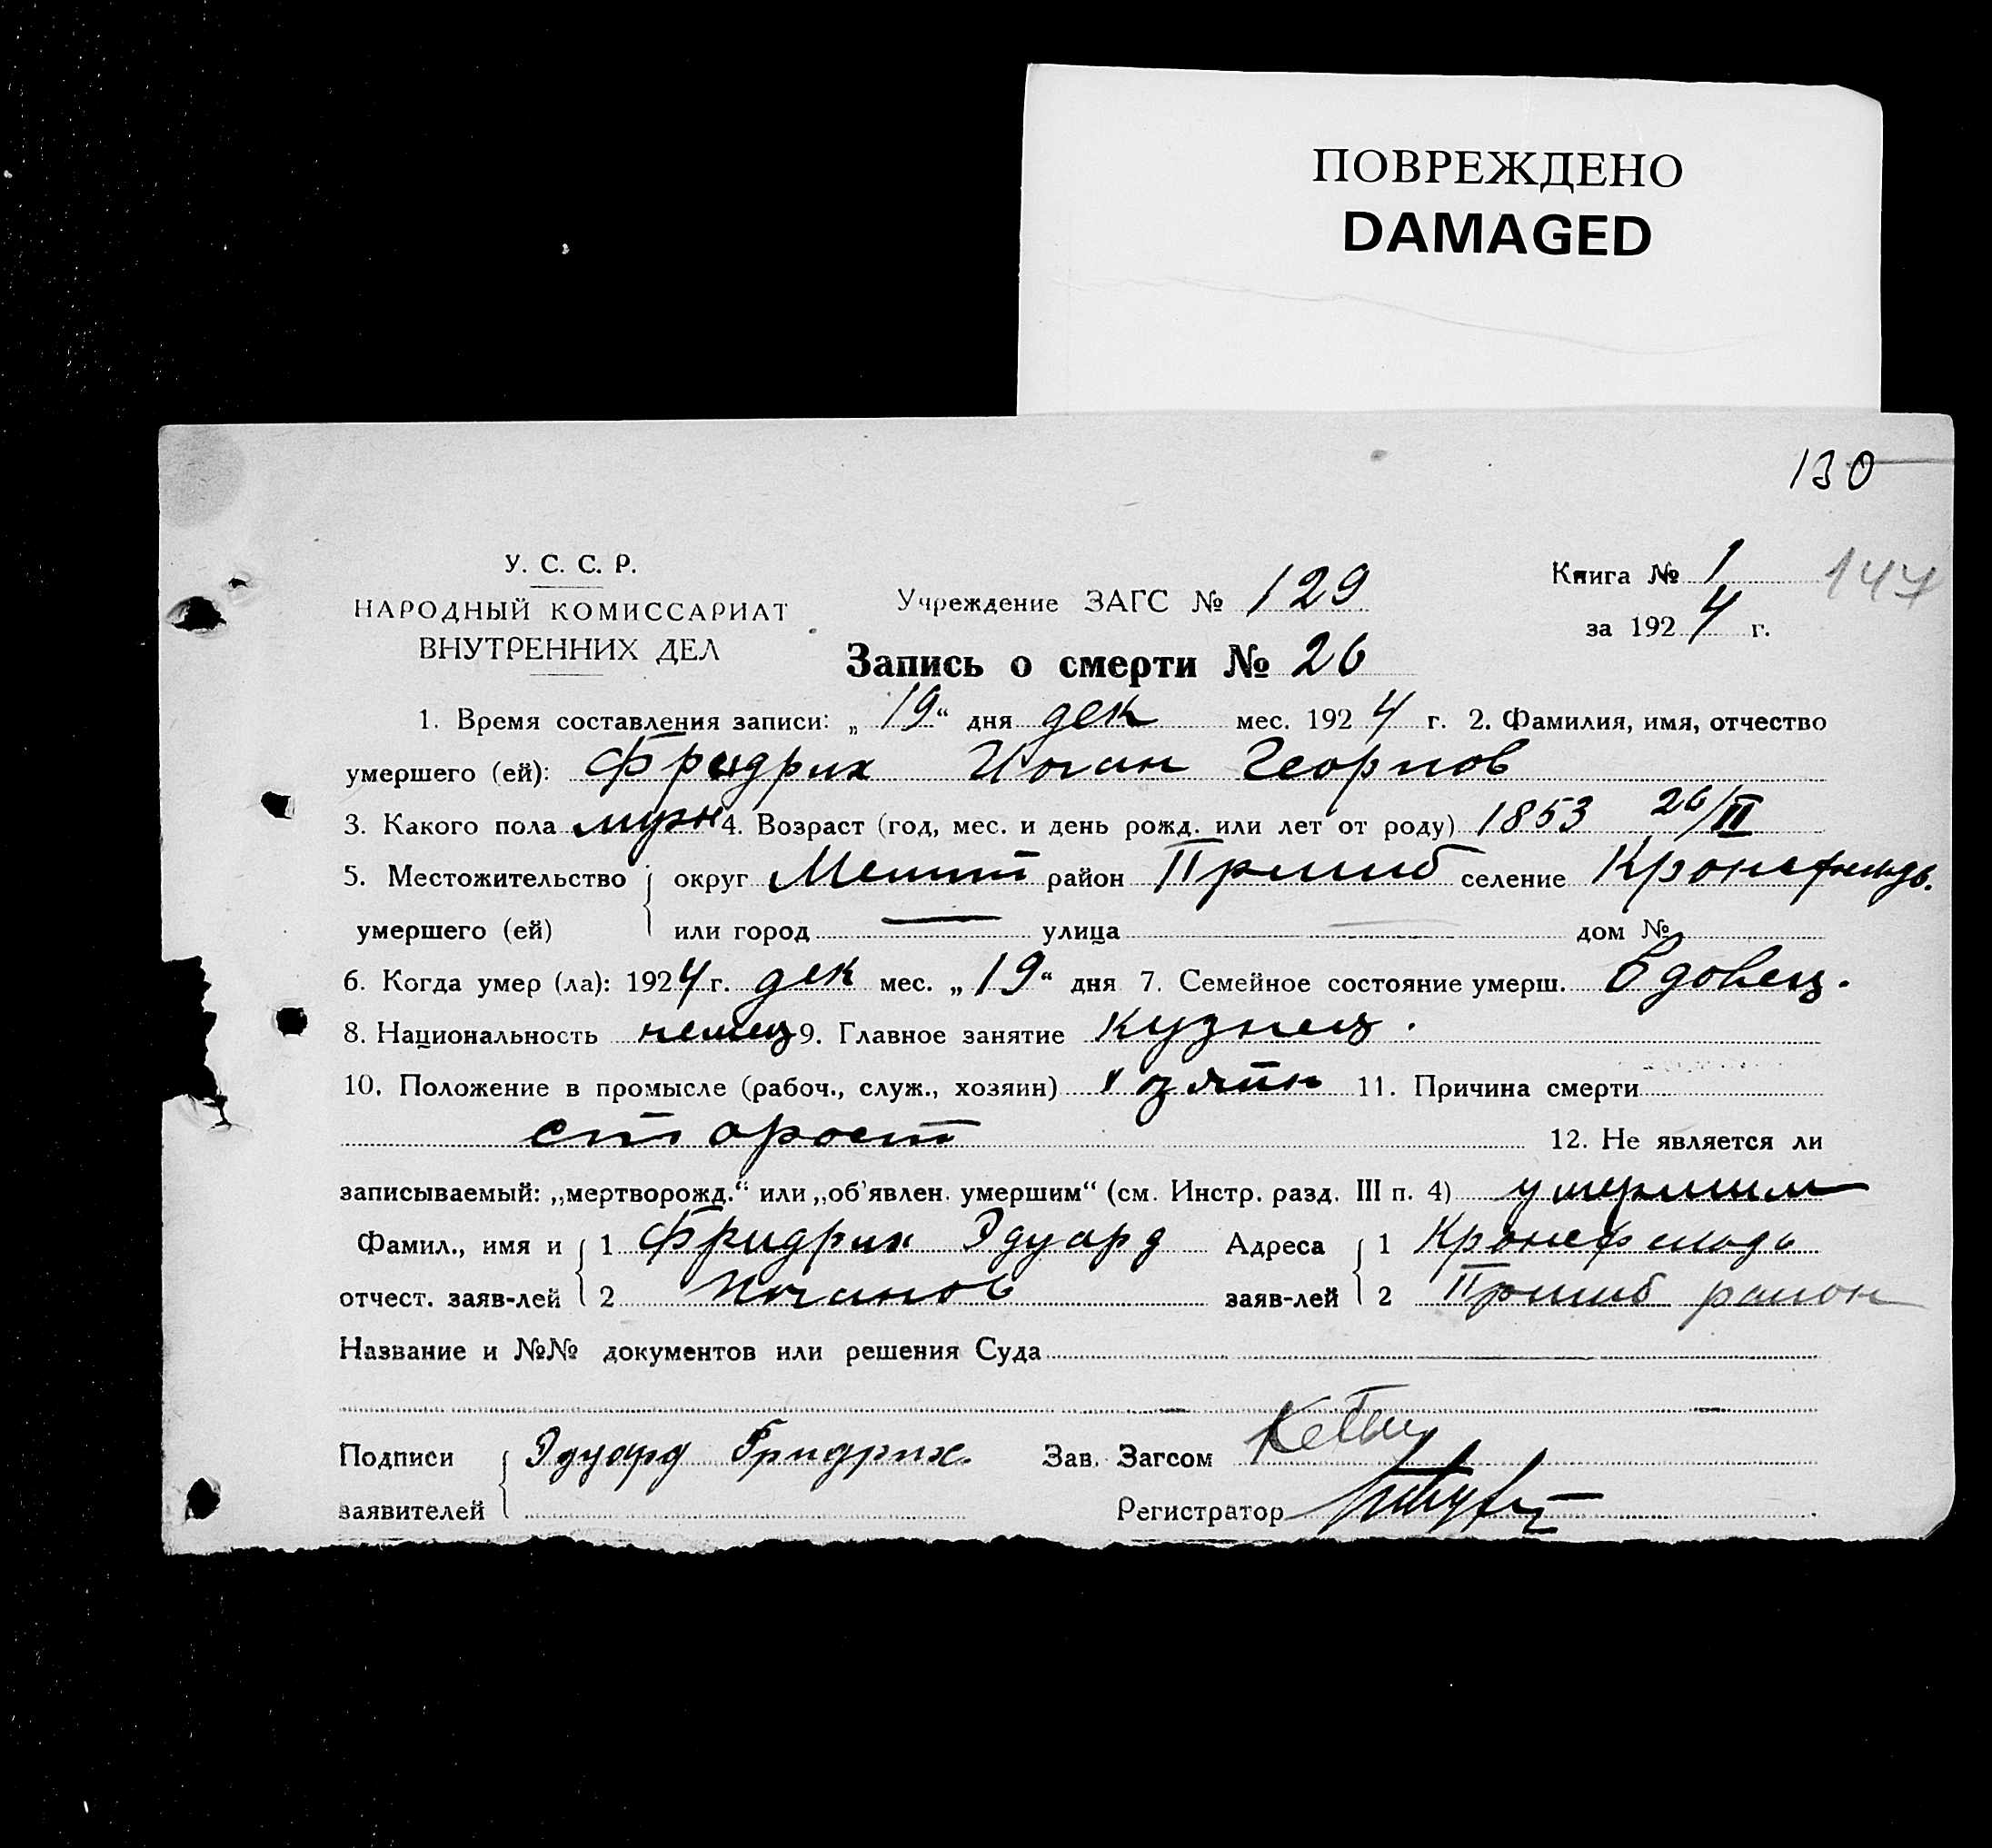 ПОВРЕЖДЕНО
DAMAGED
130
У. С. С. Р.
НАРОДНЫЙ КОМИССАРИАТ
ВНУТРЕННИХ ДЕЛ
Учреждение ЗАГС № 129
Книга № 1 147
за 1924 г.
Запись о смерти № 26
1. Время составления записи: „ 19 “ дня дек мес. 1924 г. 2. Фамилия, имя, отчество
умершего (ей): Фридрих Иоган Георгиов
3. Какого пола муж 4. Возраст (год, мес. и день рожд. или лет от роду) 1853 26/II
5. Местожительство округ Мелит район Пришиб селение Кронсфельдь.
умершего (ей) или город — улица — дом №
6. Когда умер (ла): 1924 г. дек мес. „ 19 “ дня 7. Семейное состояние умерш. Вдовец.
8. Национальность немец 9. Главное занятие кузнец.
10. Положение в промысле (рабоч., служ., хозяин) хозяин 11. Причина смерти
старост 12. Не является ли
записываемый: „мертворожд.“ или „об'явлен. умершим“ (см. Инстр. разд. III п. 4) умершим
Фамил., имя и 1 Фридрих Эдуард Адреса 1 Кронсфельдь
отчест. заяв-лей 2 Иоганов заяв-лей 2 Пришиб район
Название и №№ документов или решения Суда
Подписи Эдуард Фридрих. Зав. Загсом
заявителей Регистратор